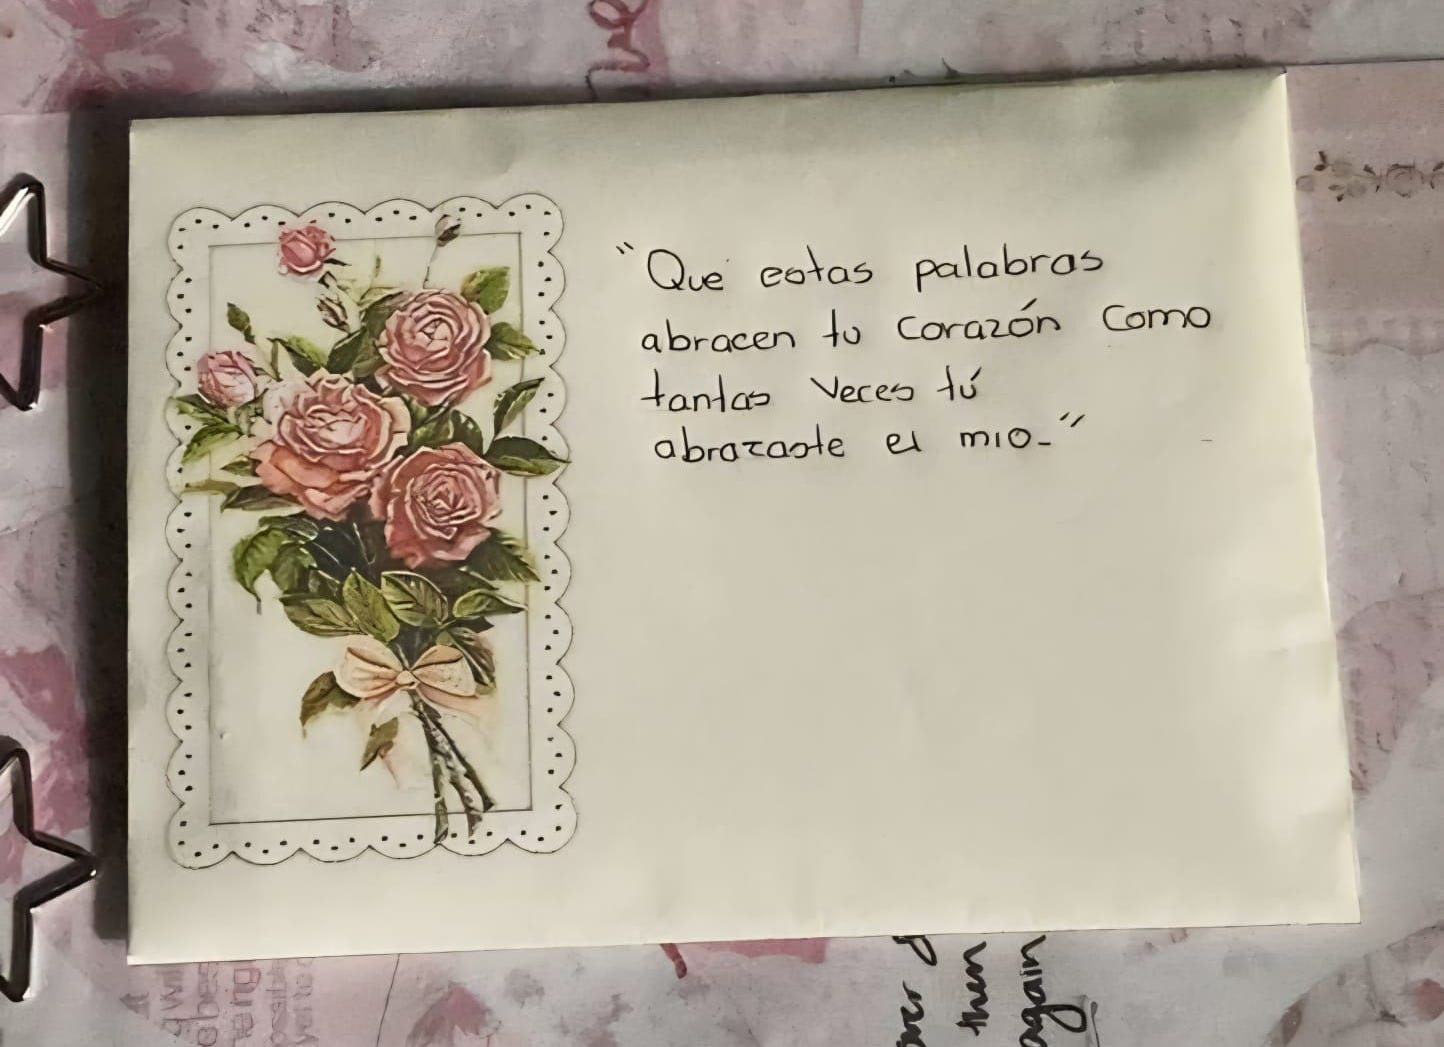 "Que estas palabras
abracen tu corazón como
tantas veces tú
abrazaste el mio."
over
then
again